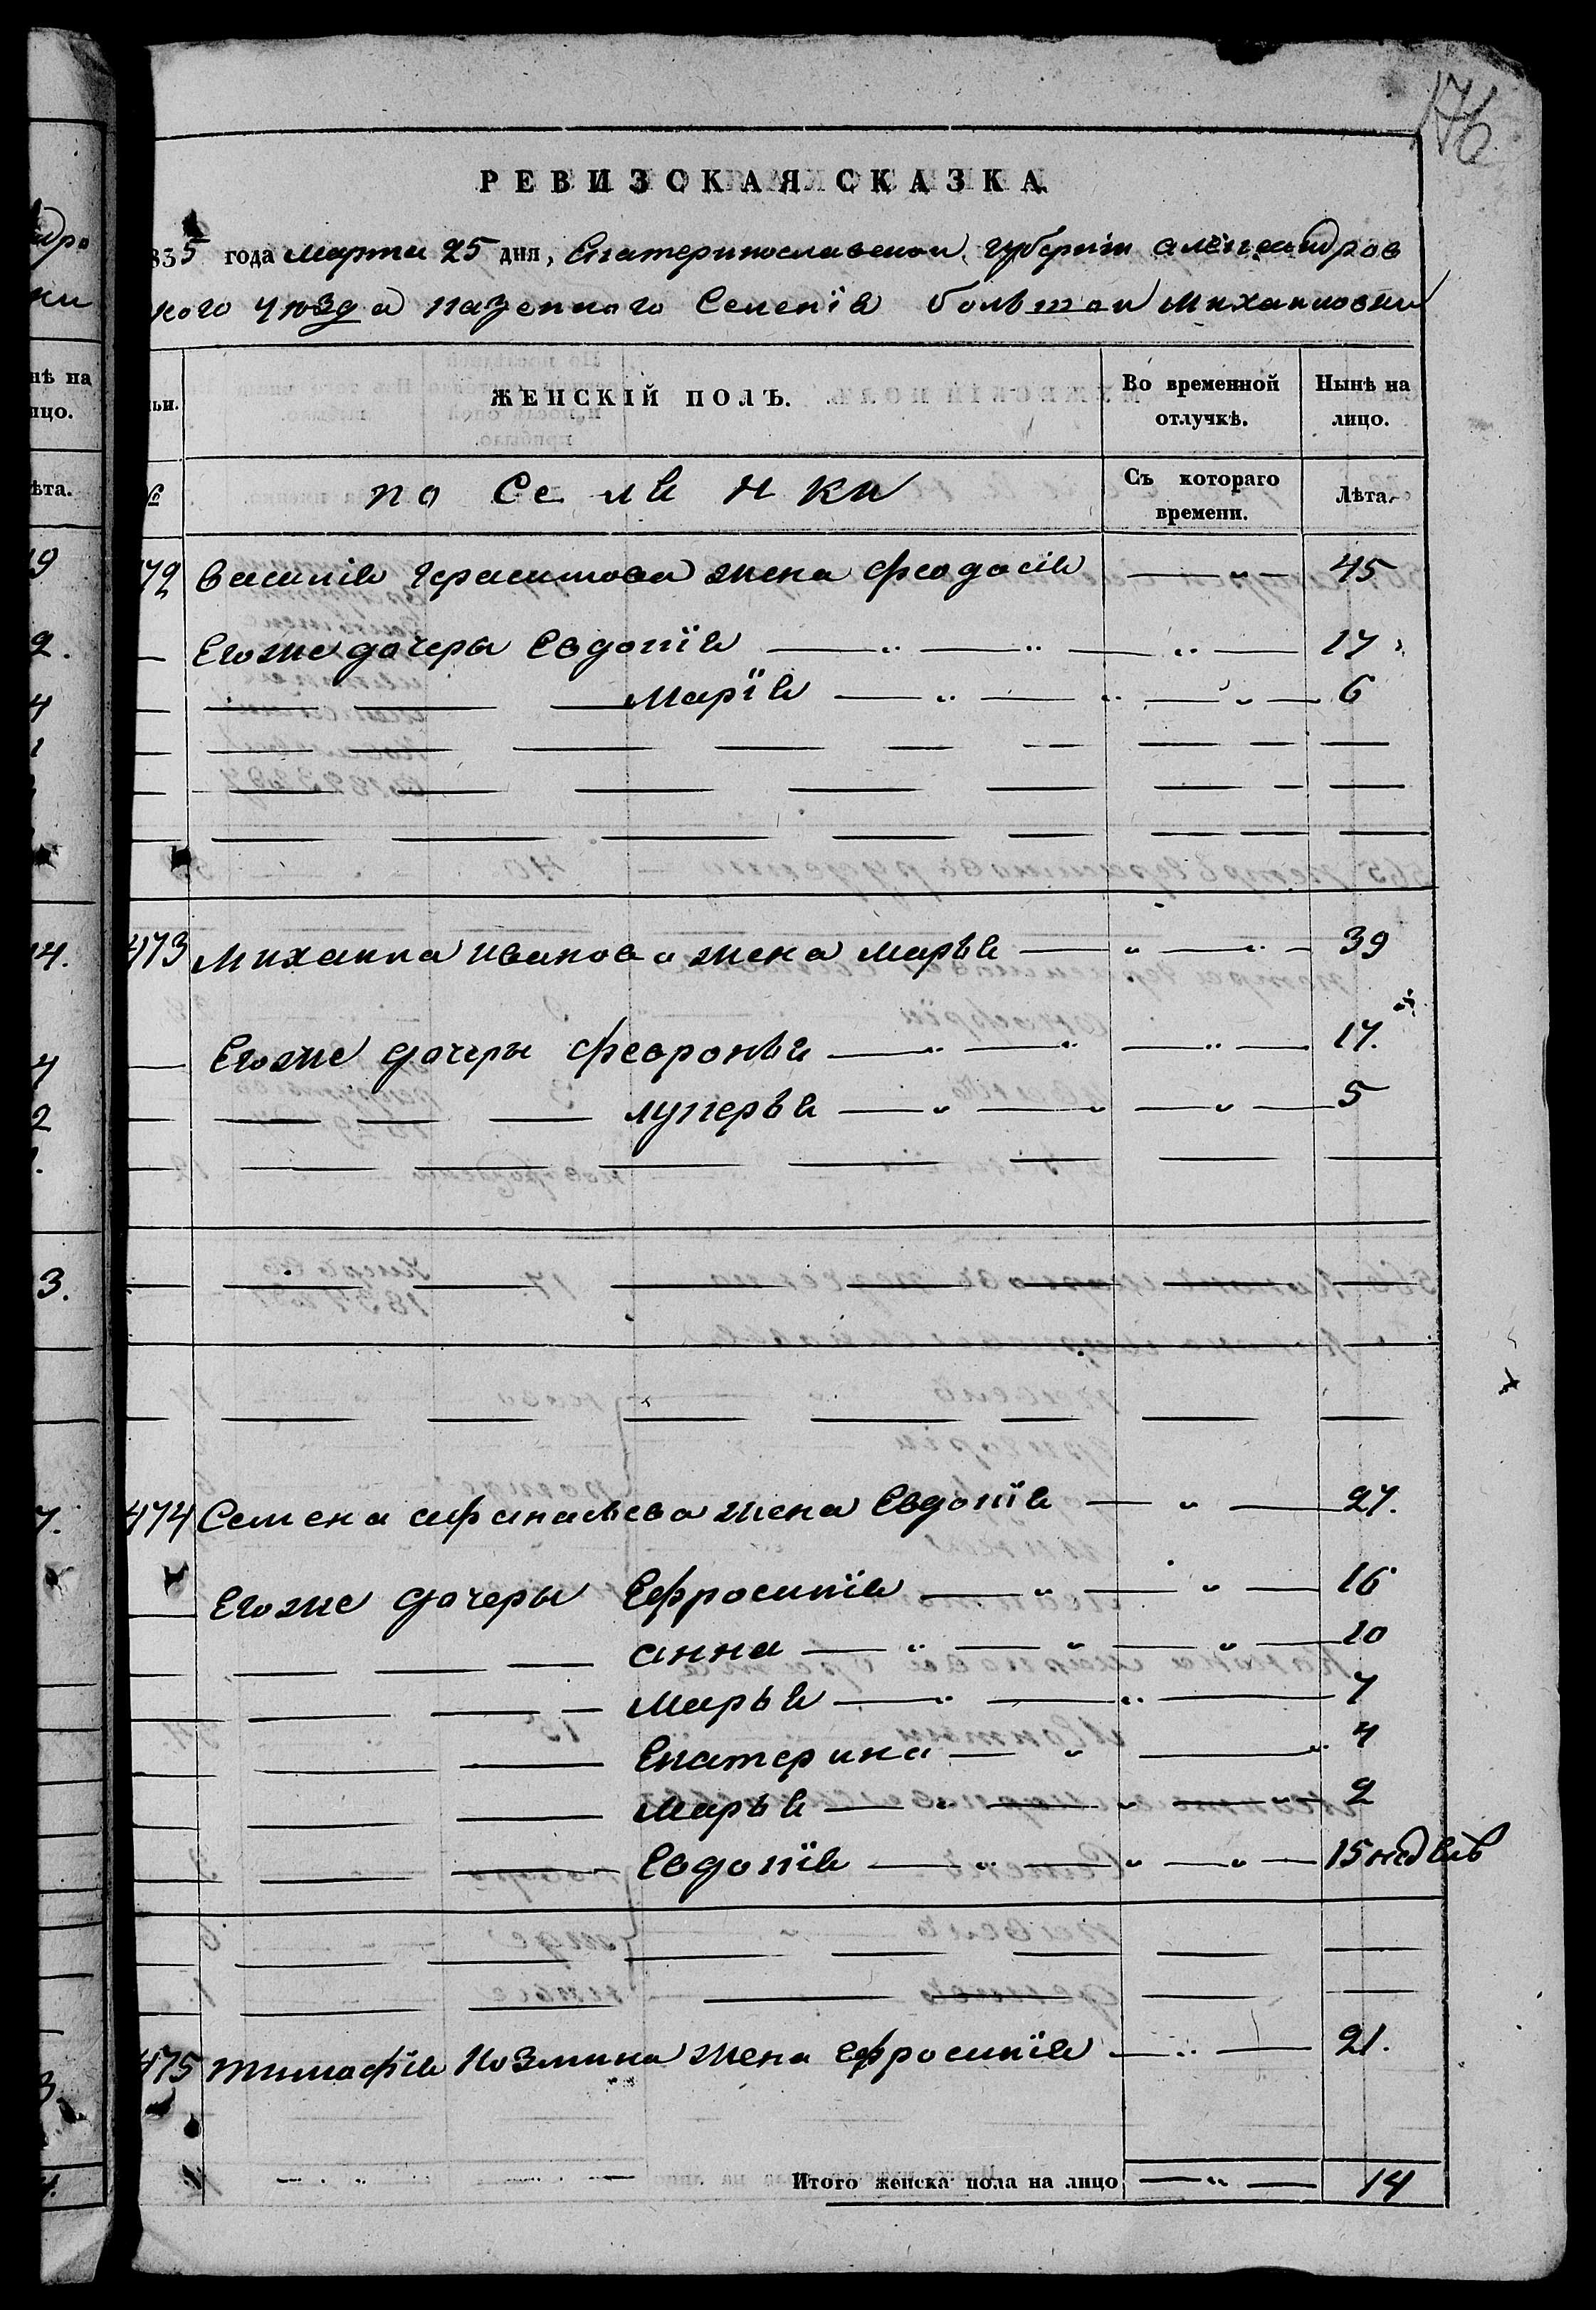 176
РЕВИЗСКАЯ СКАЗКА
835 года Марта 25 дня, Екатеринославской губернiи Александров
ского уѣзда казенного Селенiя большой Михайловки
ЖЕНСКIЙ ПОЛЪ.
Во временной отлучкѣ.
Нынѣ на лицо.
ьи.
№
поселянки
Съ котораго времени.
Лѣта.
472 Василiя Герасимова жена Феодосiя — 45
Егоже дочеры Евдокiя — 17
Марiя — 6
473 Михаила Иванова жена Марья — 39
Егоже дочеры Февронья — 17.
Лукерья — 5
474 Семена Афанасьева жена Евдокiя — 27.
Егоже дочеры Ефросинiя — 16
Анна — 10
Марья — 7
Екатерина — 4
Марья — 2
Евдокiя — 15 недѣль
475 Тимофiя Козмина жена Ефросинiя — 21.
Итого женска пола на лицо — 14